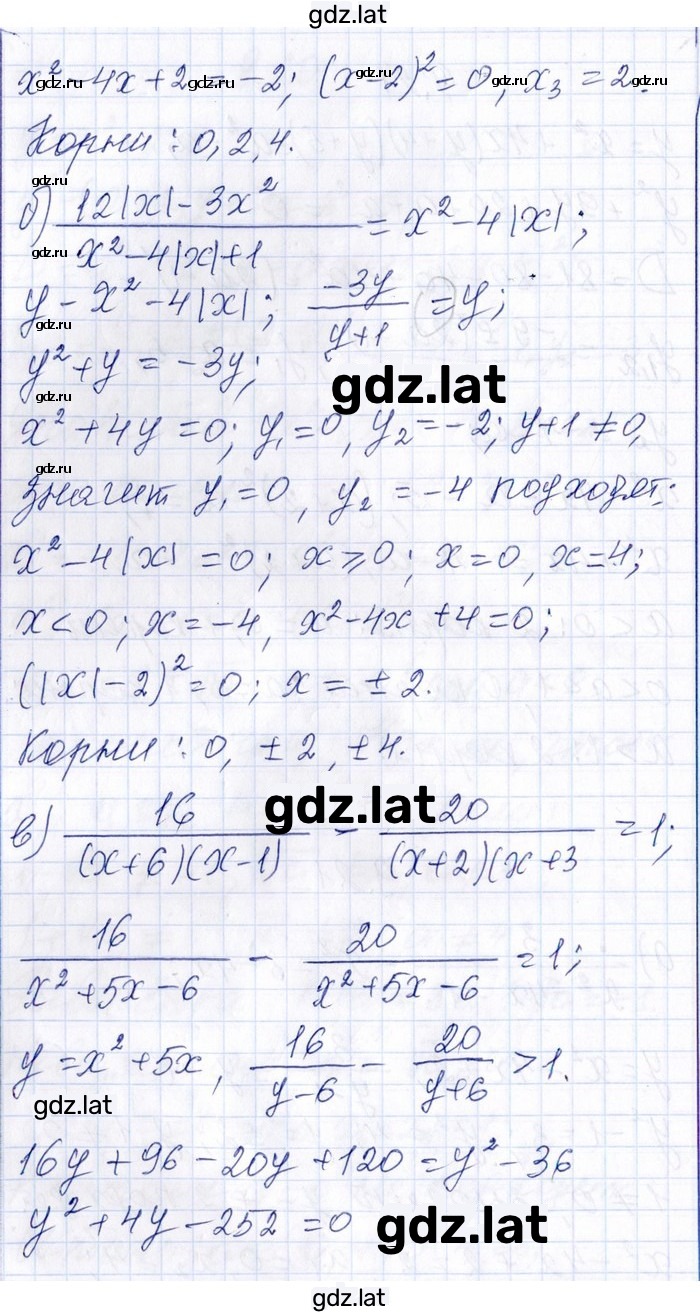 gdz.lat
x² - 4x + 2 = -2; (x-2)² = 0, x₃ = 2.
gdz.ru gdz.ru gdz.ru gdz.ru
Корни: 0, 2, 4.
gdz.ru
б) (12|x| - 3x²)/(x² - 4|x| + 1) = x² - 4|x|;
gdz.ru
y - x² - 4|x|; -3y/(y+1) = y;
gdz.ru
y² + y = -3y;
gdz.lat
gdz.ru
x² + 4y = 0; y₁ = 0, y₂ = -2; y+1 ≠ 0,
gdz.ru
Значит y₁ = 0, y₂ = -4 подходят:
x² - 4|x| = 0; x ⩾ 0; x = 0, x = 4;
x < 0; x = -4, x² - 4x + 4 = 0;
(|x| - 2)² = 0; x = ± 2.
Корни: 0, ± 2, ± 4.
gdz.lat
в) 16/((x+6)(x-1)) - 20/((x+2)(x+3 = 1;
16/(x² + 5x - 6) - 20/(x² + 5x - 6) = 1;
y = x² + 5x, 16/(y-6) - 20/(y+6) > 1.
gdz.lat
16y + 96 - 20y + 120 = y² - 36
y² + 4y - 252 = 0
gdz.lat
gdz.lat